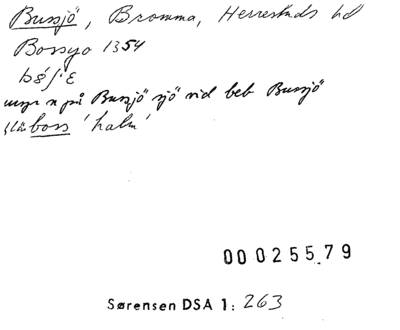 Bussjö, Bromma, Herrestads hd
Bossyo 1354
urspr n på Bussjö sjö vid beb Bussjö
boss 'halm'
000255.79
Sørensen DSA 1: 263